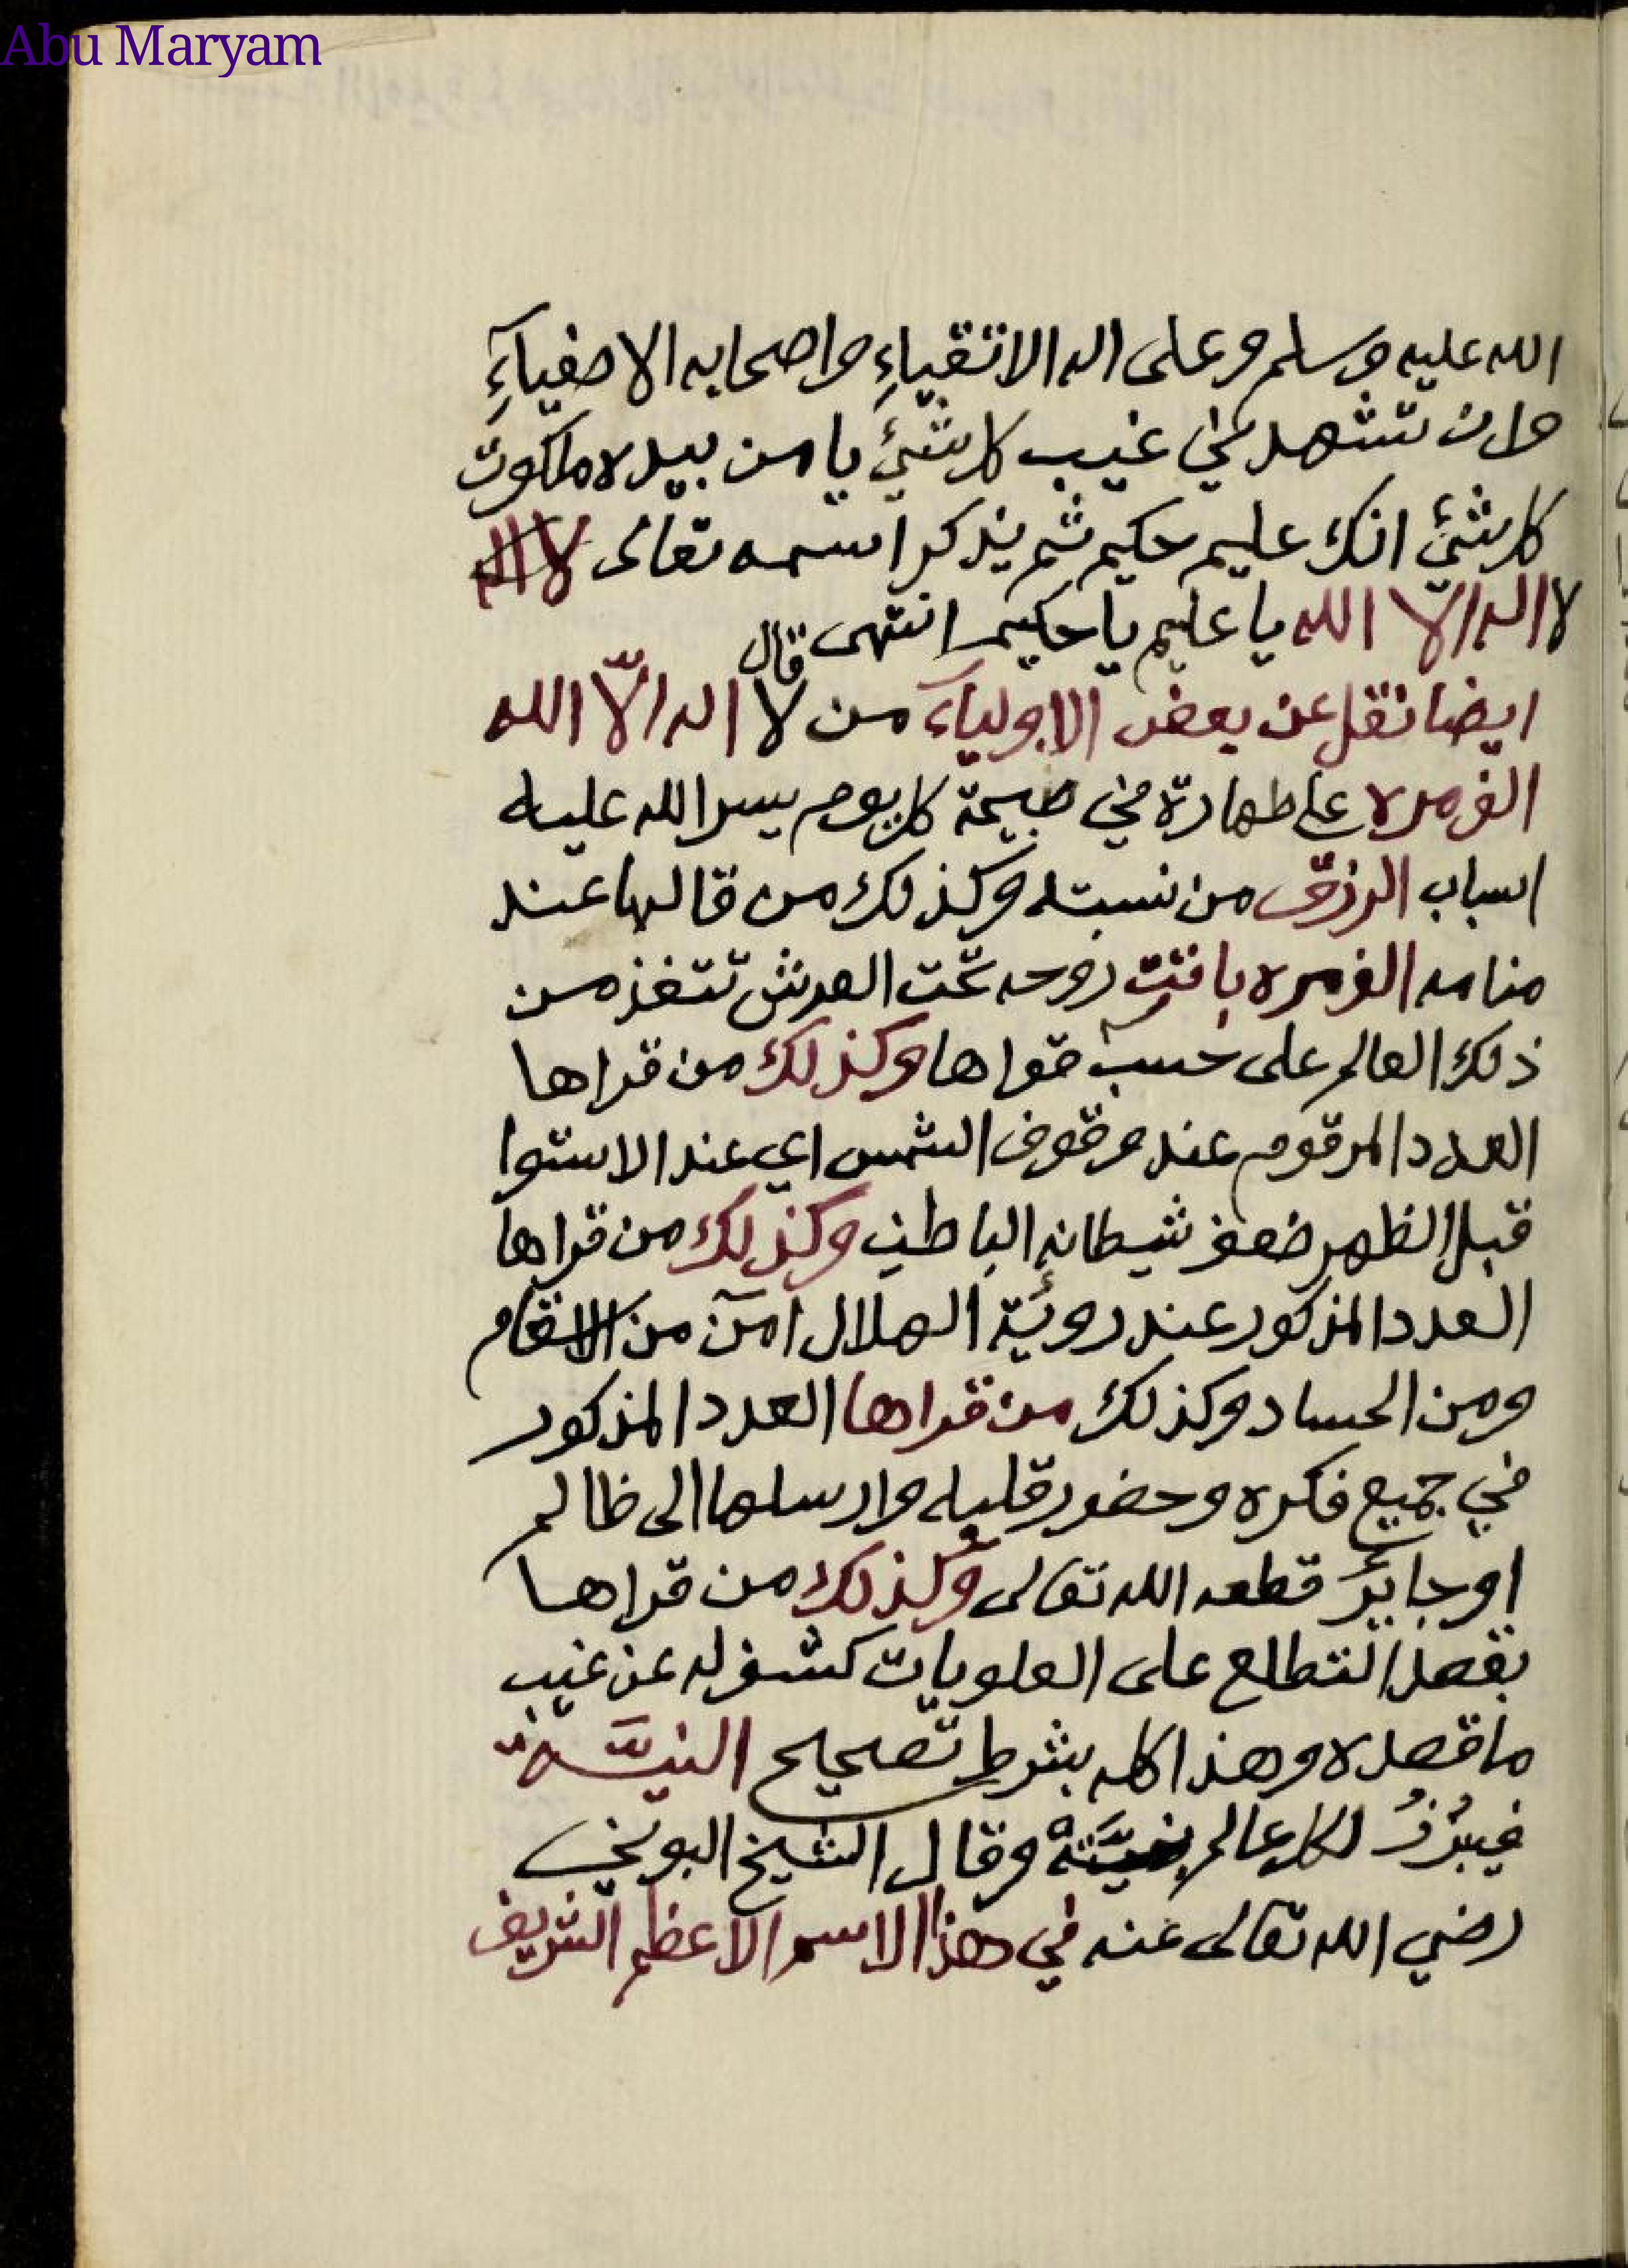 Abu Maryam
الله عليه وسلم وعلى اله الاتقياءِ واصحابه الاصفياءِ
وان تشهدني غيب كل شئ يا من بيده ملكوت
كل شئ انك عليم حكيم ثم يذكر اسمه تعالى لا اله
لا اله الا الله يا عليم يا حكيم انتهى قال
ايضا نقل عن بعض الاولياء من لا اله الّا الله
الف مره على طهارة في صبيحة كل يوم يسر الله عليه
اسباب الرزق من نسبته وكذلك من قالها عند
منامه الف مره باتت روحه تحت العرش تتغذ من
ذلك العالم على حسب قواها وكذلك من قراها
العدد المرقوم عند وقوف الشمس اي عند الاستوا
قبل الظهر ضعف شيطانه الباطن وكذلك من قراها
العدد المذكور عند روئية الهلال امن من الاسقام
ومن الحساد وكذلك من قراها العدد المذكور
في جميع فكره وحضور قلبه وارسلها الى ظالم
او جاير قطعه الله تعالى وكذلك من قراها
بقصد التطلع على العلويات كشف له عن غيب
ما قصده وهذا كله بشرط تصحيح النيَّة
فيبرُزُ لكل عالم بنيَّتهْ وقال الشيخ البوني
رضي الله تعالى عنه في هذا الاسم الاعظم الشريف